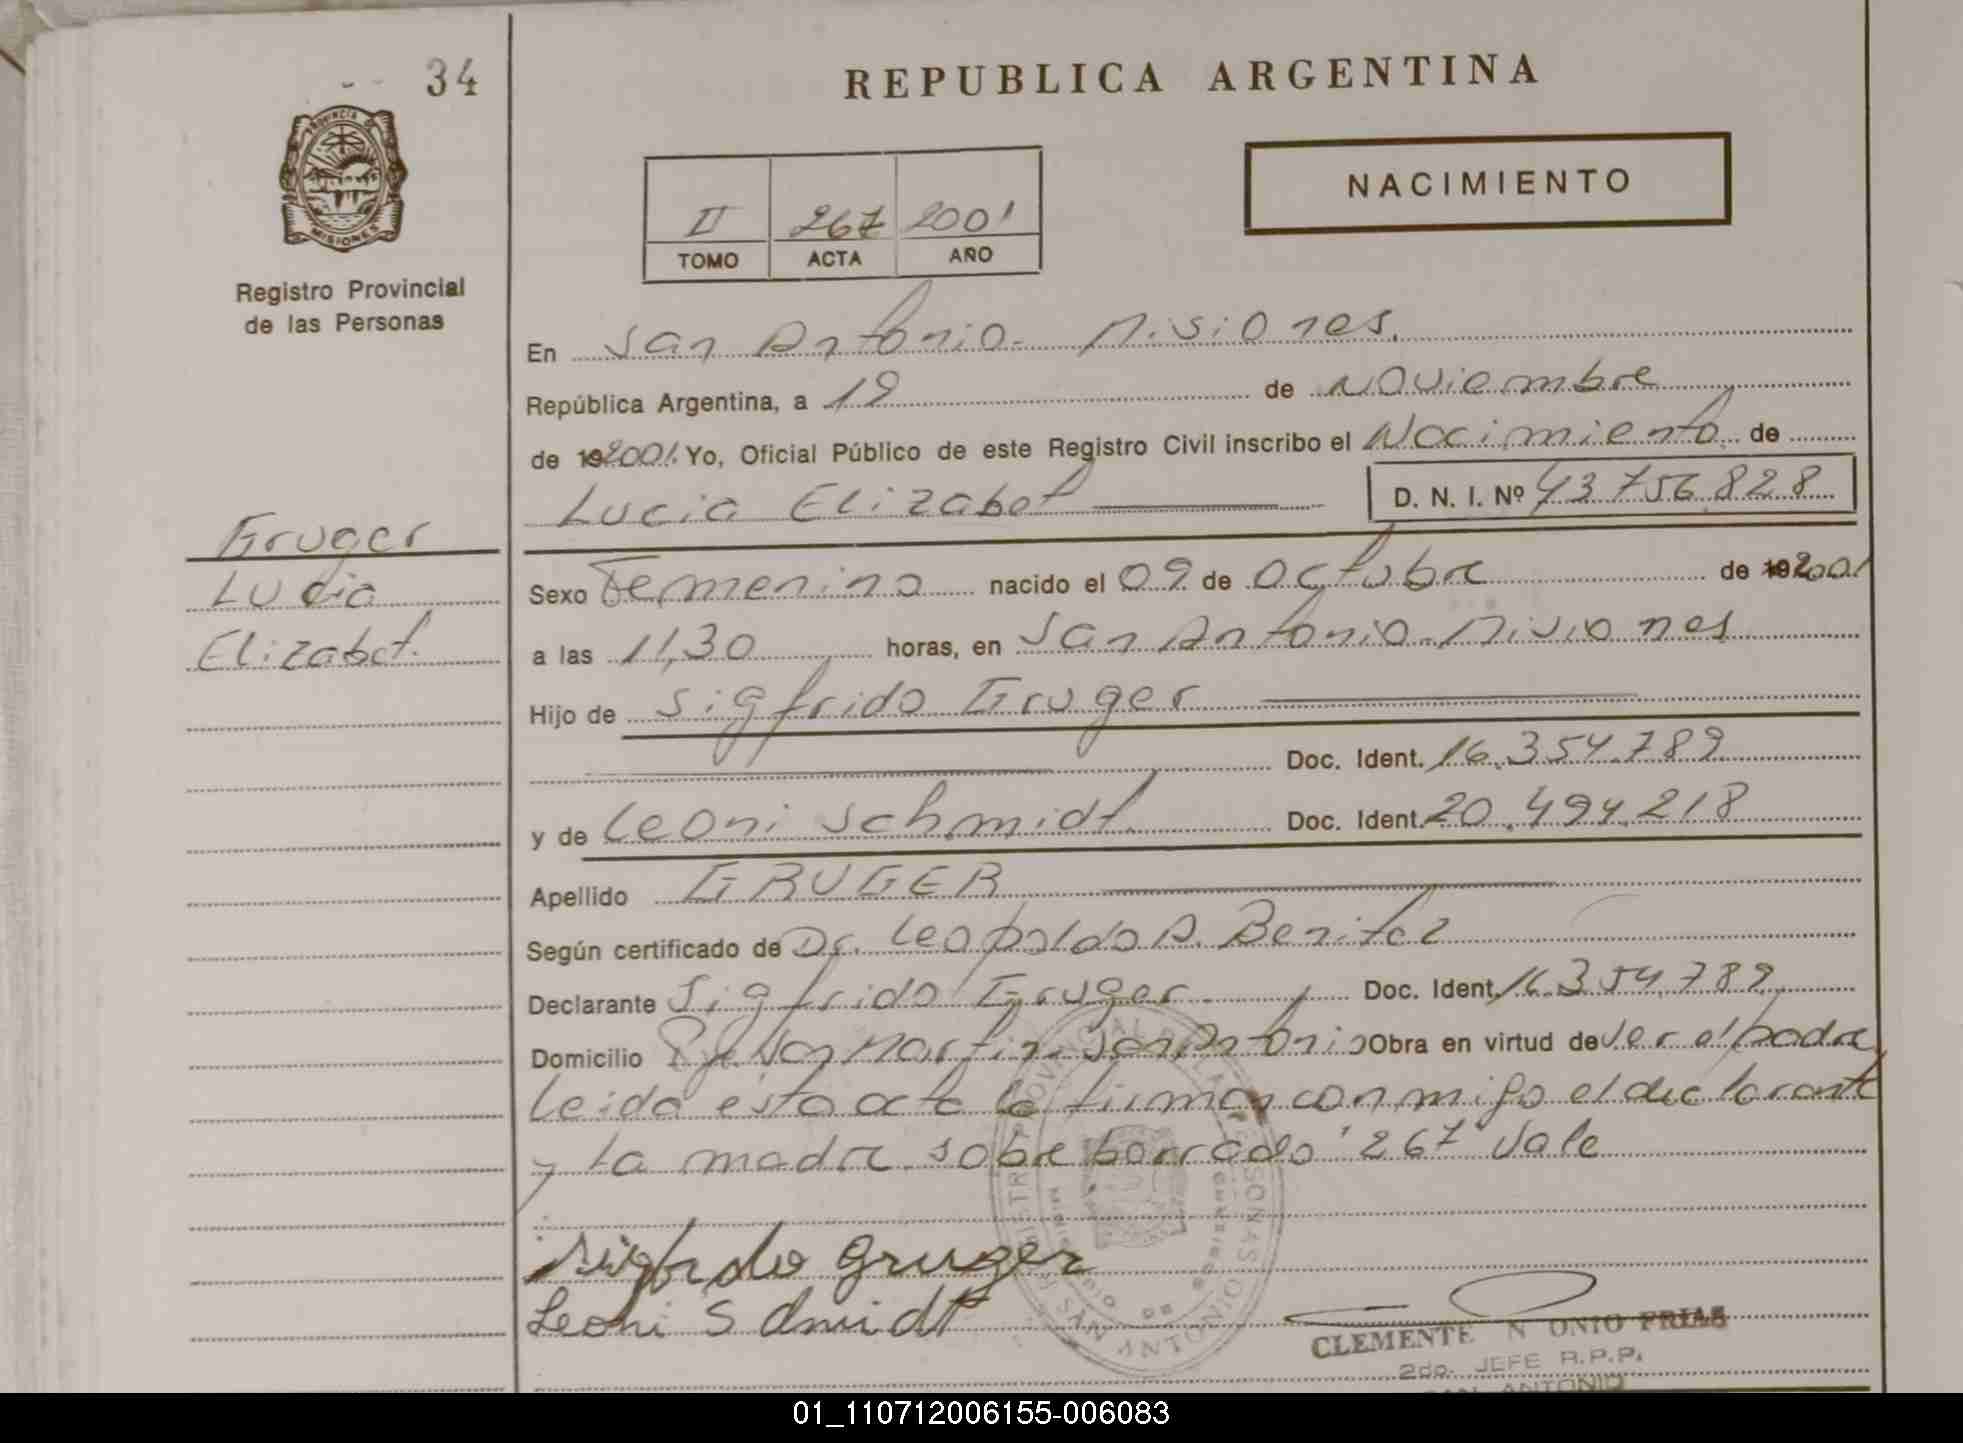 34
REPUBLICA ARGENTINA
PROVINCIA DE
MISIONES
Registro Provincial
de las Personas
NACIMIENTO
II 267 2001
TOMO ACTA AÑO
En San Antonio - Misiones.
República Argentina, a 19 de Noviembre
de 192001. Yo, Oficial Público de este Registro Civil inscribo el Nacimiento de
Lucia Elizabet D. N. I. Nº 43.756.828
Gruger
Lucia
Elizabet.
Sexo Femenino nacido el 09 de Octubre de 192001
a las 11,30 horas, en San Antonio - Misiones
Hijo de Sigfrido Gruger
Doc. Ident. 16.354.789
y de Leoni Schmidt Doc. Ident. 20.494.218
Apellido GRUGER
Según certificado de Dr. Leopoldo A. Benitez
Declarante Sigfrido Gruger Doc. Ident. 16.354.789
Domicilio Pje. San Martin San Antonio Obra en virtud de ser el padre
Leida esta acta la firman conmigo el declarante
y la madre sobre borrado "267" Vale
Sigfrido Gruger
Leoni Schmidt
CLEMENTE N ONIO FRIAS
2do. JEFE R.P.P.
SAN ANTONIO
01_110712006155-006083